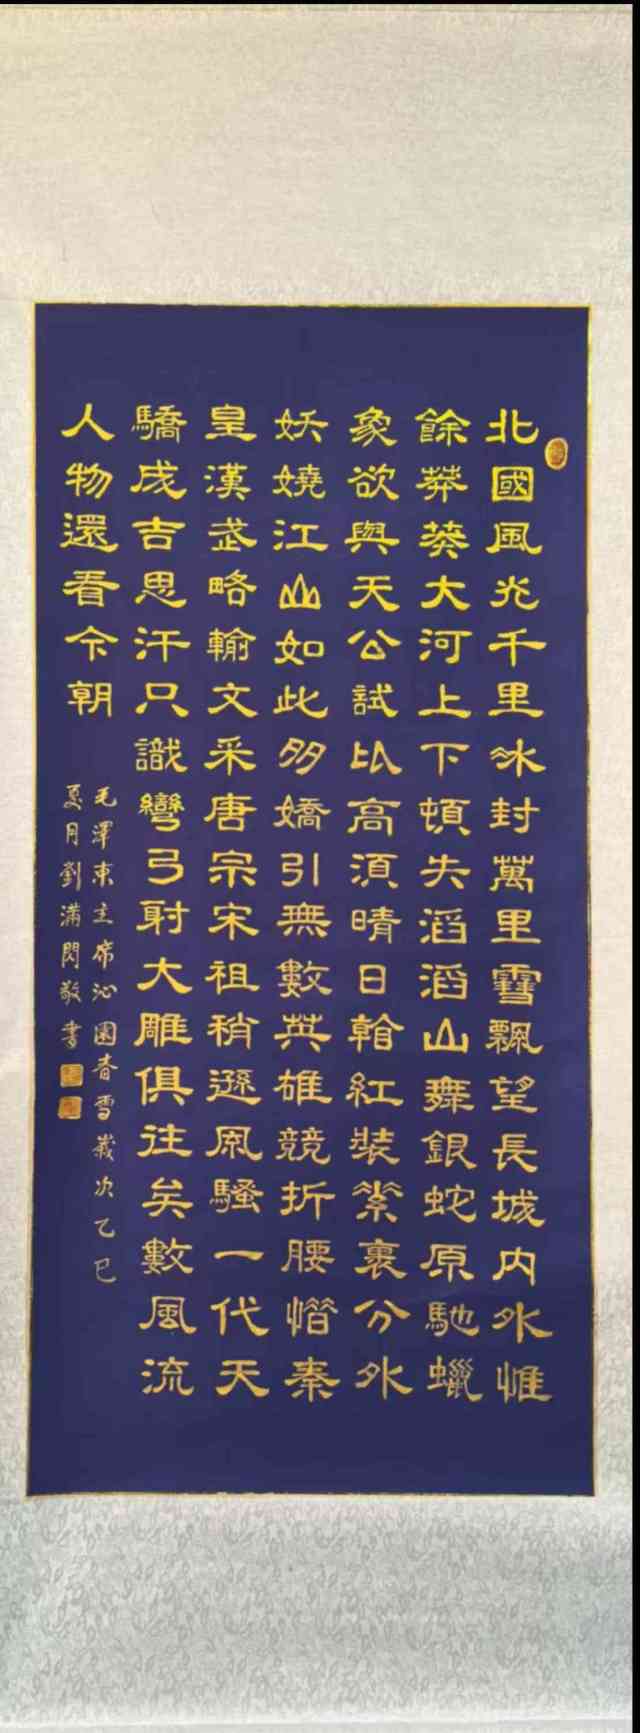 北國風光千里冰封萬里雪飄望長城内外惟
餘莽莽大河上下頓失滔滔山舞銀蛇原馳蠟
象欲與天公試比高須晴日看紅装素裹分外
妖嬈江山如此多嬌引無數英雄競折腰惜秦
皇漢武略輸文采唐宗宋祖稍遜風騷一代天
驕成吉思汗只識彎弓射大雕俱往矣數風流
人物還看今朝
毛澤東主席沁園春雪歲次乙巳
夏月劉滿閃敬書